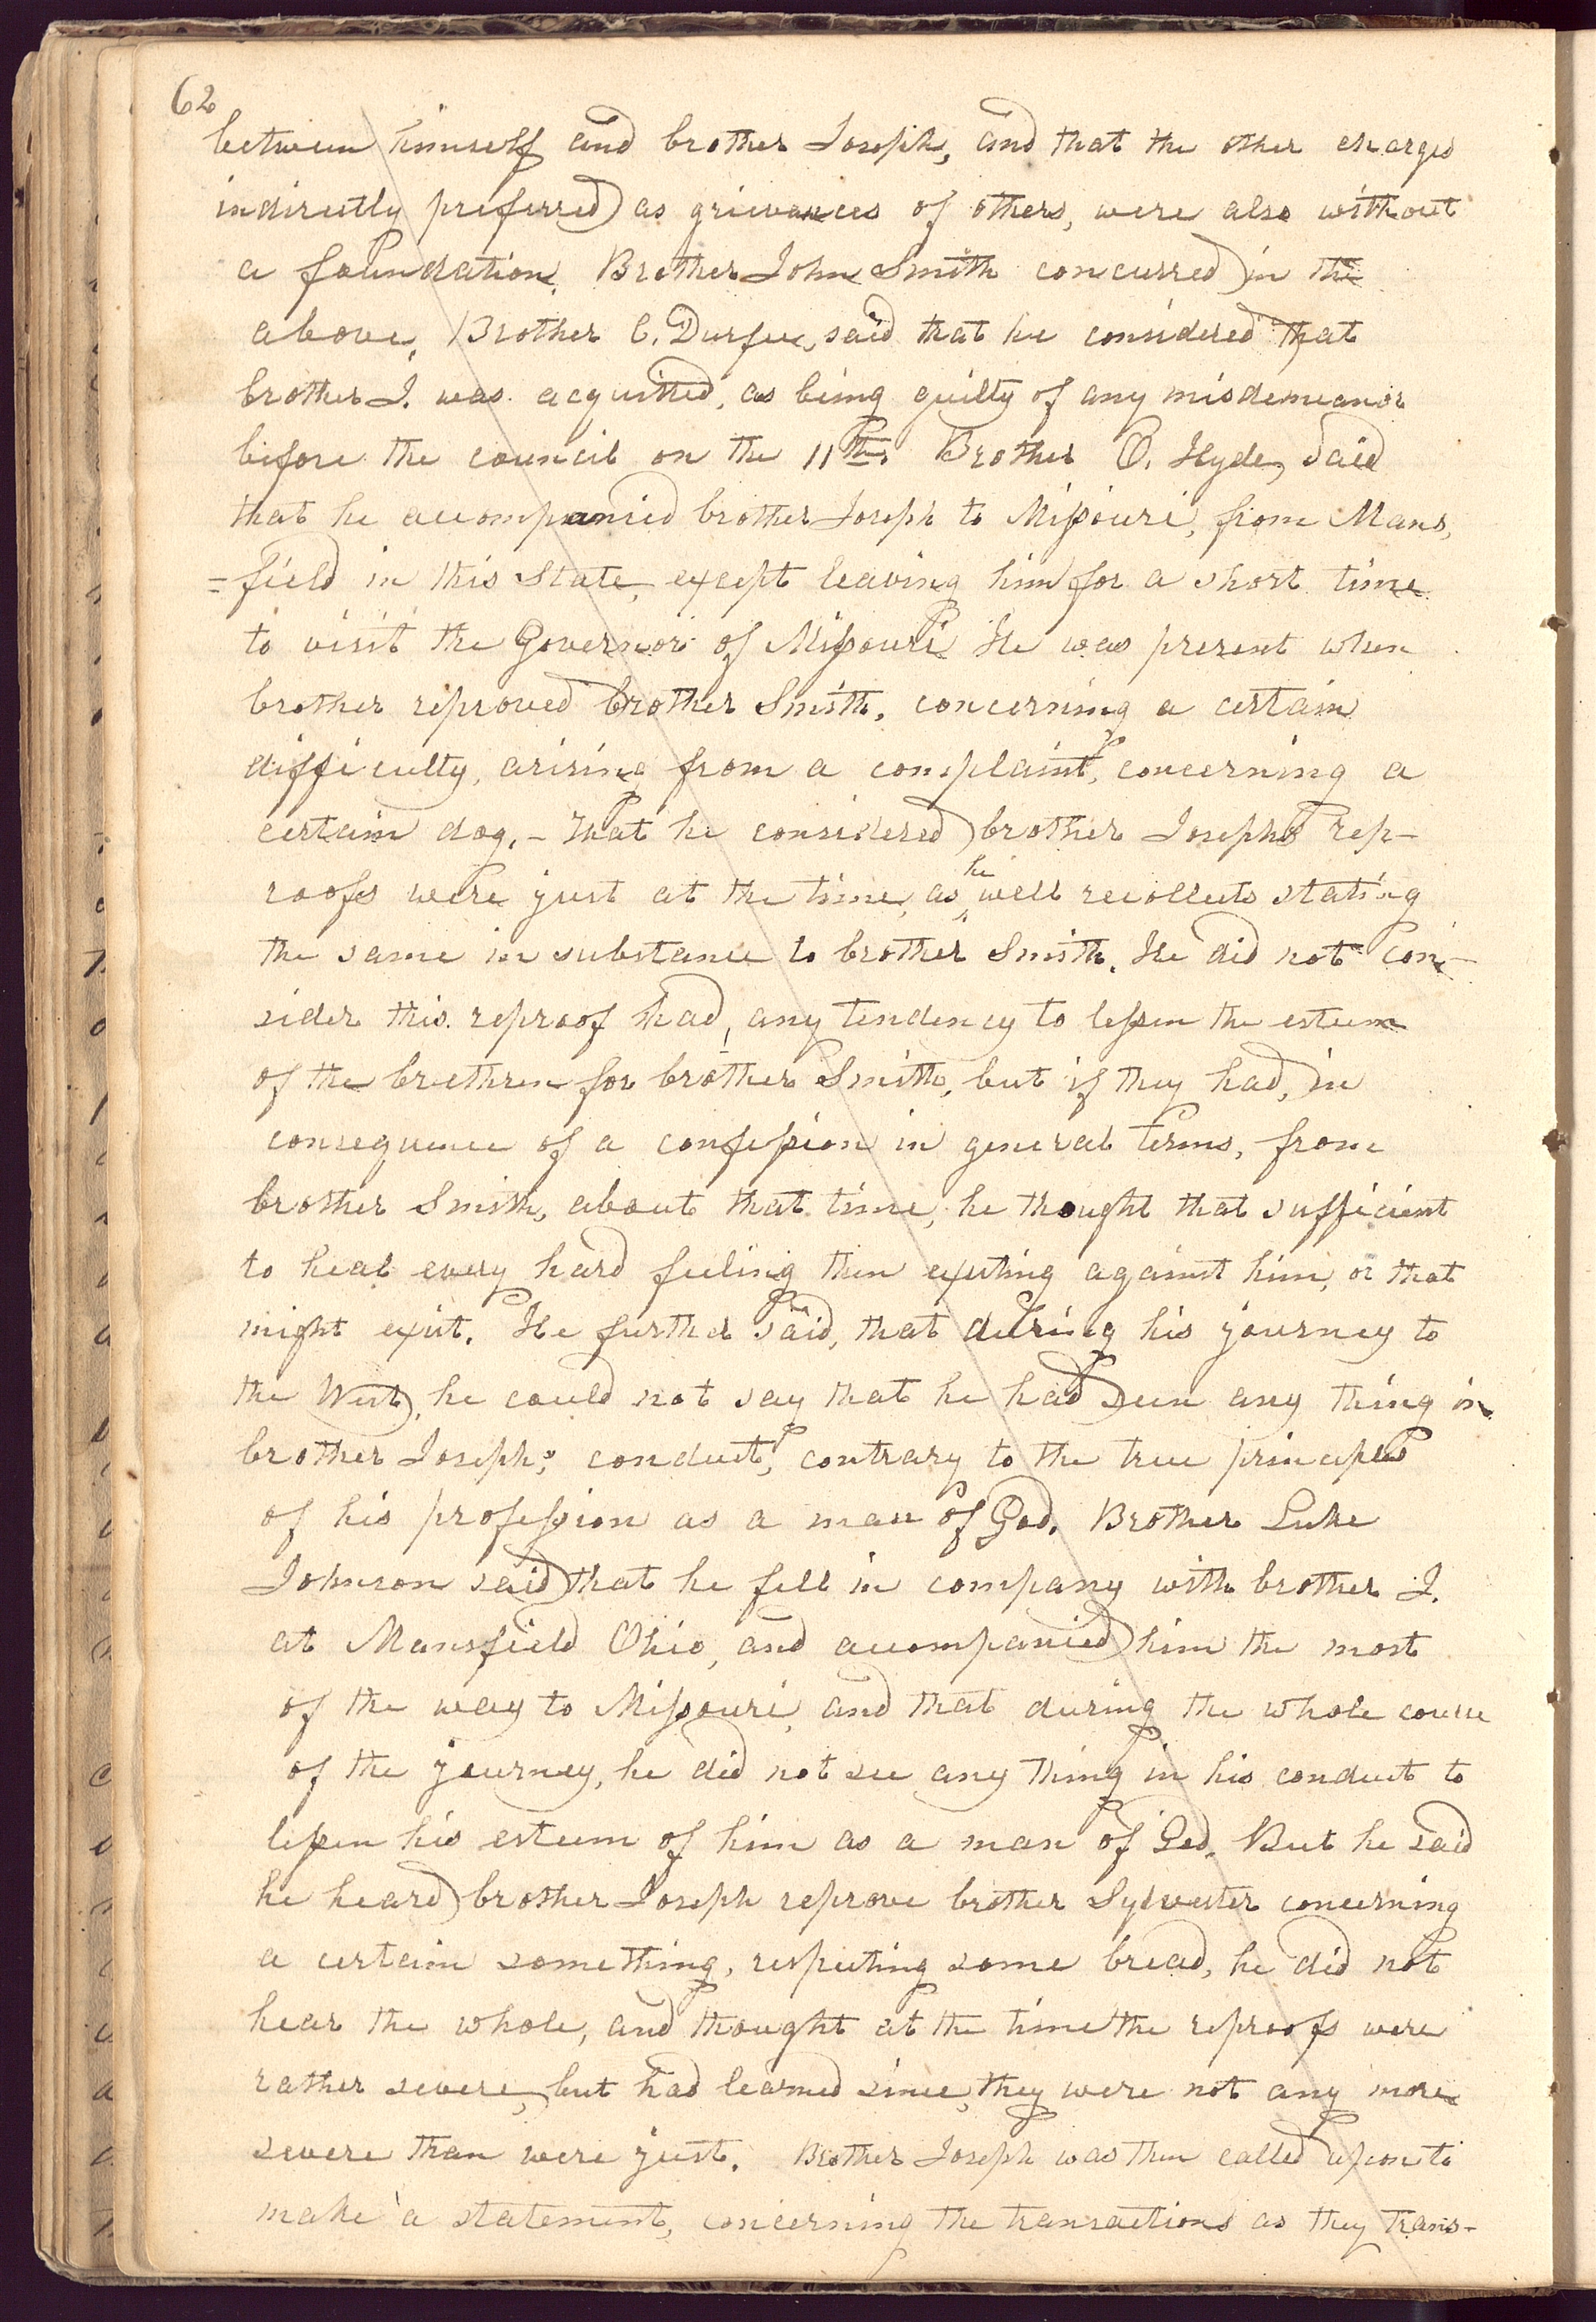 62
between himself and brother Joseph, and that the other charges
indirectly preferred as grievances of others, were also without
a foundation. Brother John Smith concurred in the
above, Brother C. Durfee, said that he considered that
brother J. was acquitted, as being guilty of any misdemeanor
before the council on the 11th. Brother O. Hyde, said
that he accompanied brother Joseph to Missouri, from Mans,
=field in this State, except leaving him for a short time
to visit the Governor of Missouri He was present when
brother reproved brother Smith, concerning a certain
difficulty, arising from a complaint, concerning a
certain dog,- That he considered brother Joseph's rep-
roofs were just at the time, as he well recollects stating
the same in substance to brother Smith. He did not con-
sider this reproof had, any tendency to lessen the esteem
of the brethren for brother Smith, but if they had, in
consequence of a confession in general terms, from
brother Smith, about that time, he thought that sufficient
to heal every hard feeling then existing against him, or that
might exist. He further said, that during his journey to
the West, he could not say that he had seen any thing in
brother Joseph's conduct, contrary to the true principles
of his profession as a man of God. Brother Luke
Johnson said that he fell in company with brother J.
at Mansfield Ohio, and accompanied him the most
of the way to Missouri, and that during the whole course
of the journey, he did not see any thing in his conduct to
lessen his esteem of him as a man of God. But he said
he heard brother Joseph reprove brother Sylvester concerning
a certain something, respecting some bread, he did not
hear the whole, and thought at the time the reproofs were
rather severe, but had learned since, they were not any more
severe than were just. Brother Joseph was then called upon to
make a statement, concerning the transactions as they trans-